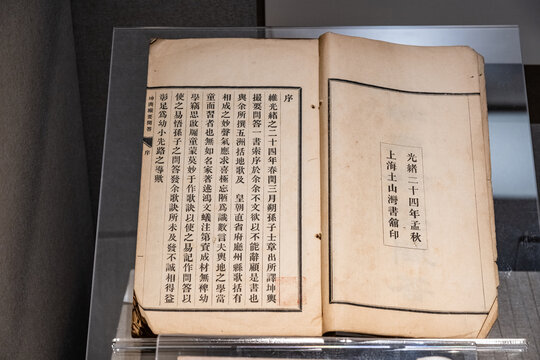 光緒二十四年孟秋
上海土山灣書館印
序
維光緒之二十四年春閏三月朔孫子士章出所譯坤輿
撮要問答一書索序於余余不文欲以不能辭顧是書也
與余所撰五洲括地歌及 皇朝直省府廳州縣歌括有
相成之妙聲氣應求喜極忘陋爲識數言夫輿地之學當
童而習者也無如名家著述鴻文巇注第資成材無裨幼
學竊思啟牖童蒙莫妙于作歌訣以使之易記作問答以
使之易悟孫子之問答發余歌訣所未及發不誠相得益
彰足爲幼小先路之導歟
坤輿撮要問答 序